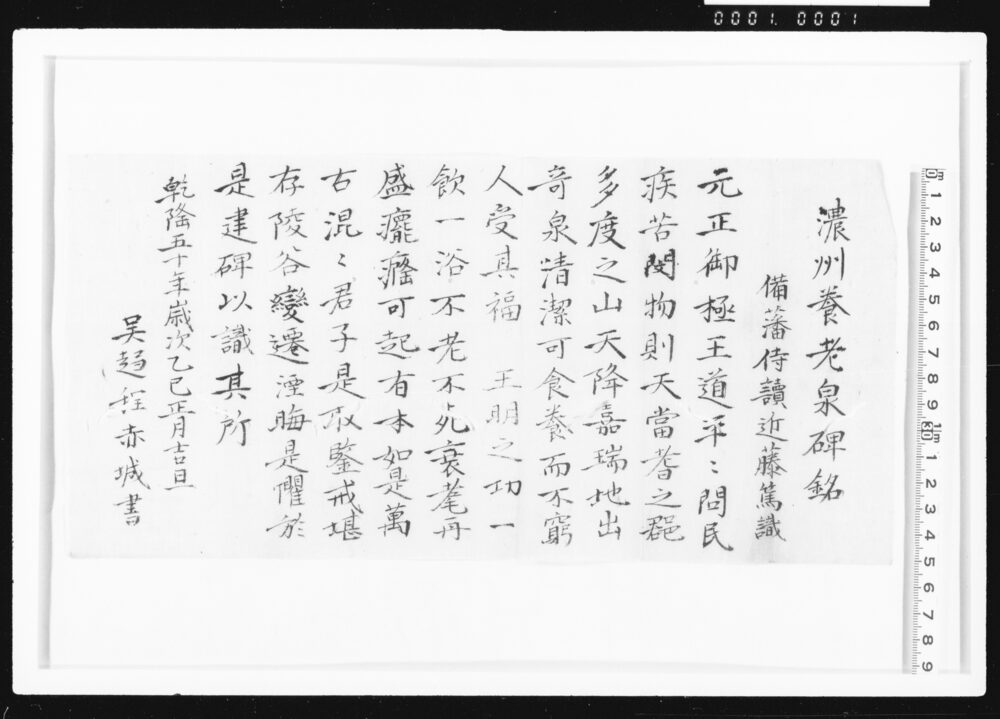 濃州養老泉碑銘
備藩侍讀近藤篤識
元正御極王道平〻問民
疾苦閔物則天當耆之郡
多度之山天降嘉瑞地出
奇泉清潔可食養而不窮
人受其福 王明之功一
飲一浴不老不死衰耄再
盛癃癃可起有本如是萬
古混〻君子是取鑒戒堪
存陵谷變遷湮晦是懼於
是建碑以識其所
乾隆五十年歲次乙巳正月吉旦
吳趨程赤城書
0001.0001
cm 1 2 3 4 5 6 7 8 9 10 1 2 3 4 5 6 7 8 9